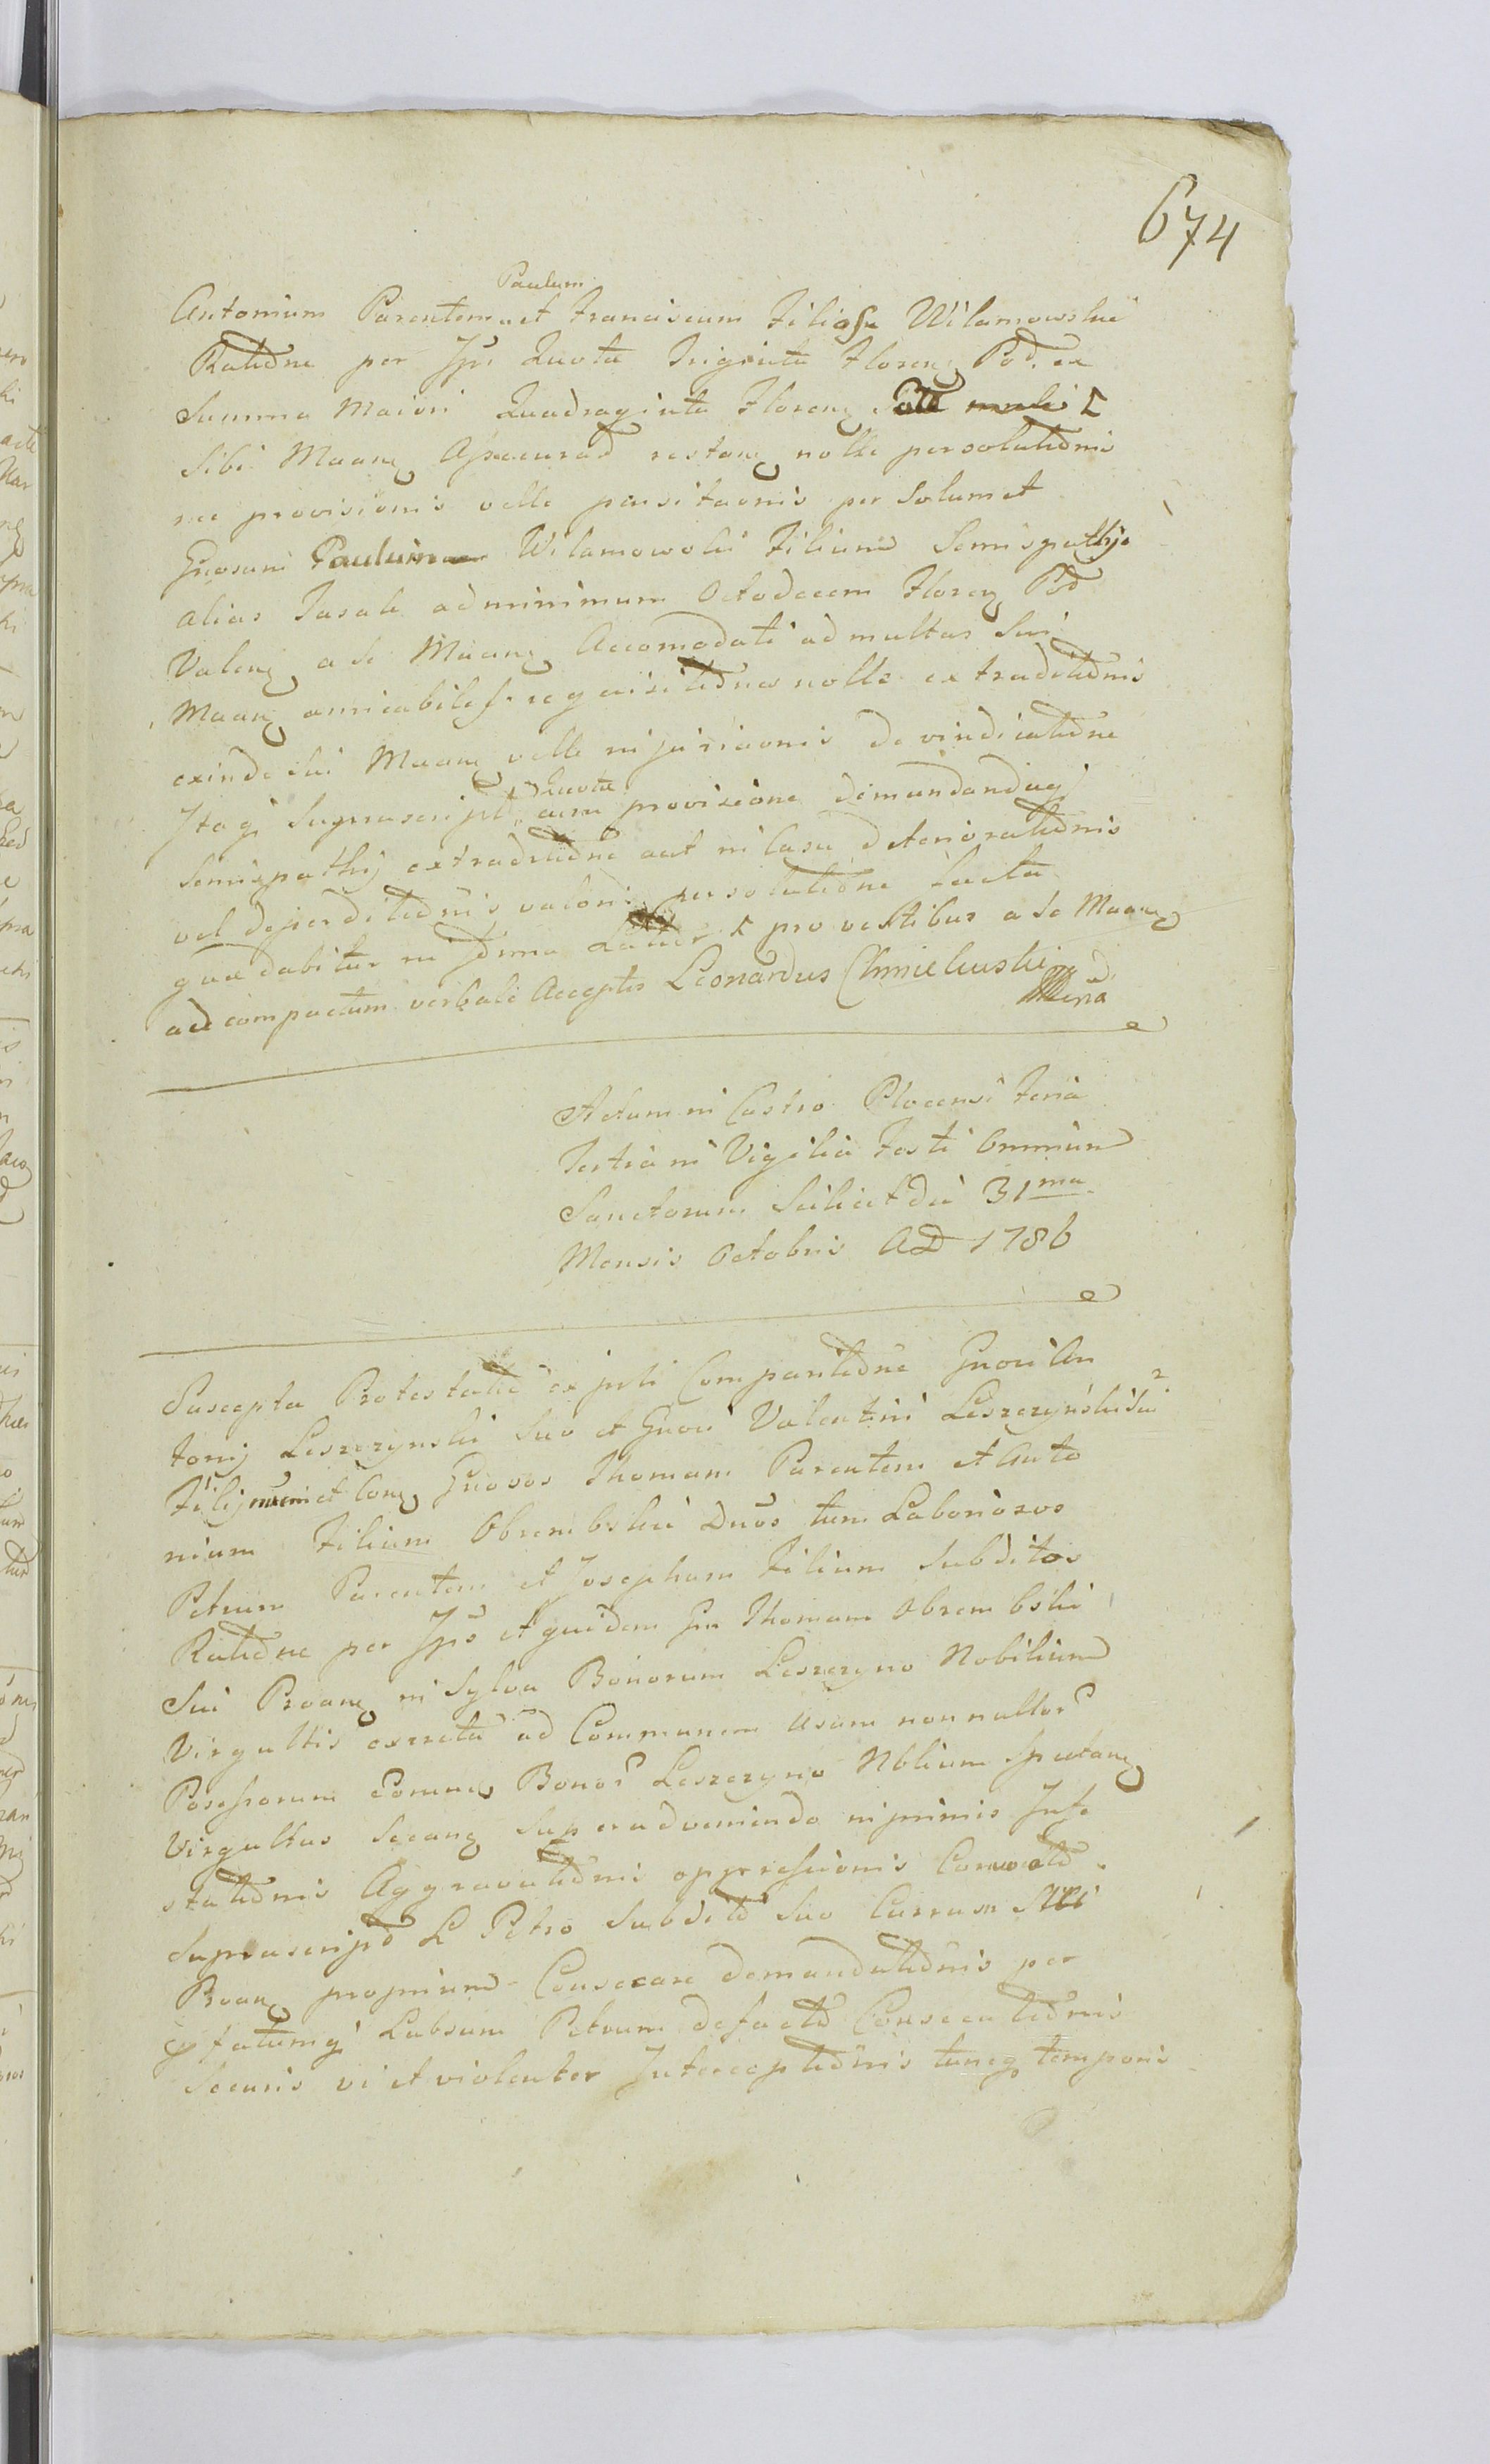 674
Paulum
Antonium Parentem et Franciscum Filios Wilamowskie
Ratiōne per Ipsos Quota Triginta Floreng Pol. ex
Summa Maiori Quadraginta Floreng
Sibi Maang Assecurat restang nolle persolutiōnis
nec provisionis velle pensitaonis per Solum et
Gnosum Paulum Wilamowski Filium Semispathij
alias Tasak ad minimum Octodecem Floreng Pol
Valeng a Se Maang Accomodati ad multas Sui
Maang amicabiles requisitiōnes nolle extraditiōnis
exinde Sui Maang velle injuriaonis de vindicatiōne
Quota
Itaq Suprascript cum provisione dimandandaqj
Semispathij extraditiōne aut in Casu deterioratiōnis
vel deperditiōnis valoris persolutiōne facta
quae dabitur in forma pro vestibus a Se Maang
ad compactum verbale Acceptis Leonardus Chmielewski
Actum in Castro Plocensi Feria
Tertia in Vigilia Festi Omnium
Sanctorum Scilicet die 31ma
Mensis Octobris AD 1786
Suscepta Protestatio ex parti Comparitiōne Gnosi An
tonij Leszczynski Suo et Gnosi Valentini Leszczynski Sui
Filij nnem et Cong Gnosos Thomam Parentem et Anto
nium Filium Obrembskie Duos tum Laboriosos
Petrum Parentem et Josephum Filium Subditos
Ratiōne per Ipsos et quidem Gm Thomam Obrembski
Sui Proang in Sylva Bonorum Leszczyno Nobilium
Virgultis excreta ad Communem Usum nonnullor
Possessorum eorum Bonor Leszczyno Nblium Spectang
Virgultas Secang Superadveniendo in primis Infe
statiōnis Aggravatiōnis oppressionis Convoca
Suprascripto L Petro Subdito Suo Currum Sui
Proang proprium Consecare demandatiōnis per
pfatumq Labsum Petrum de facto Consecatiōnis
Securis vi et violenter Interceptiōnis tuncq temporis